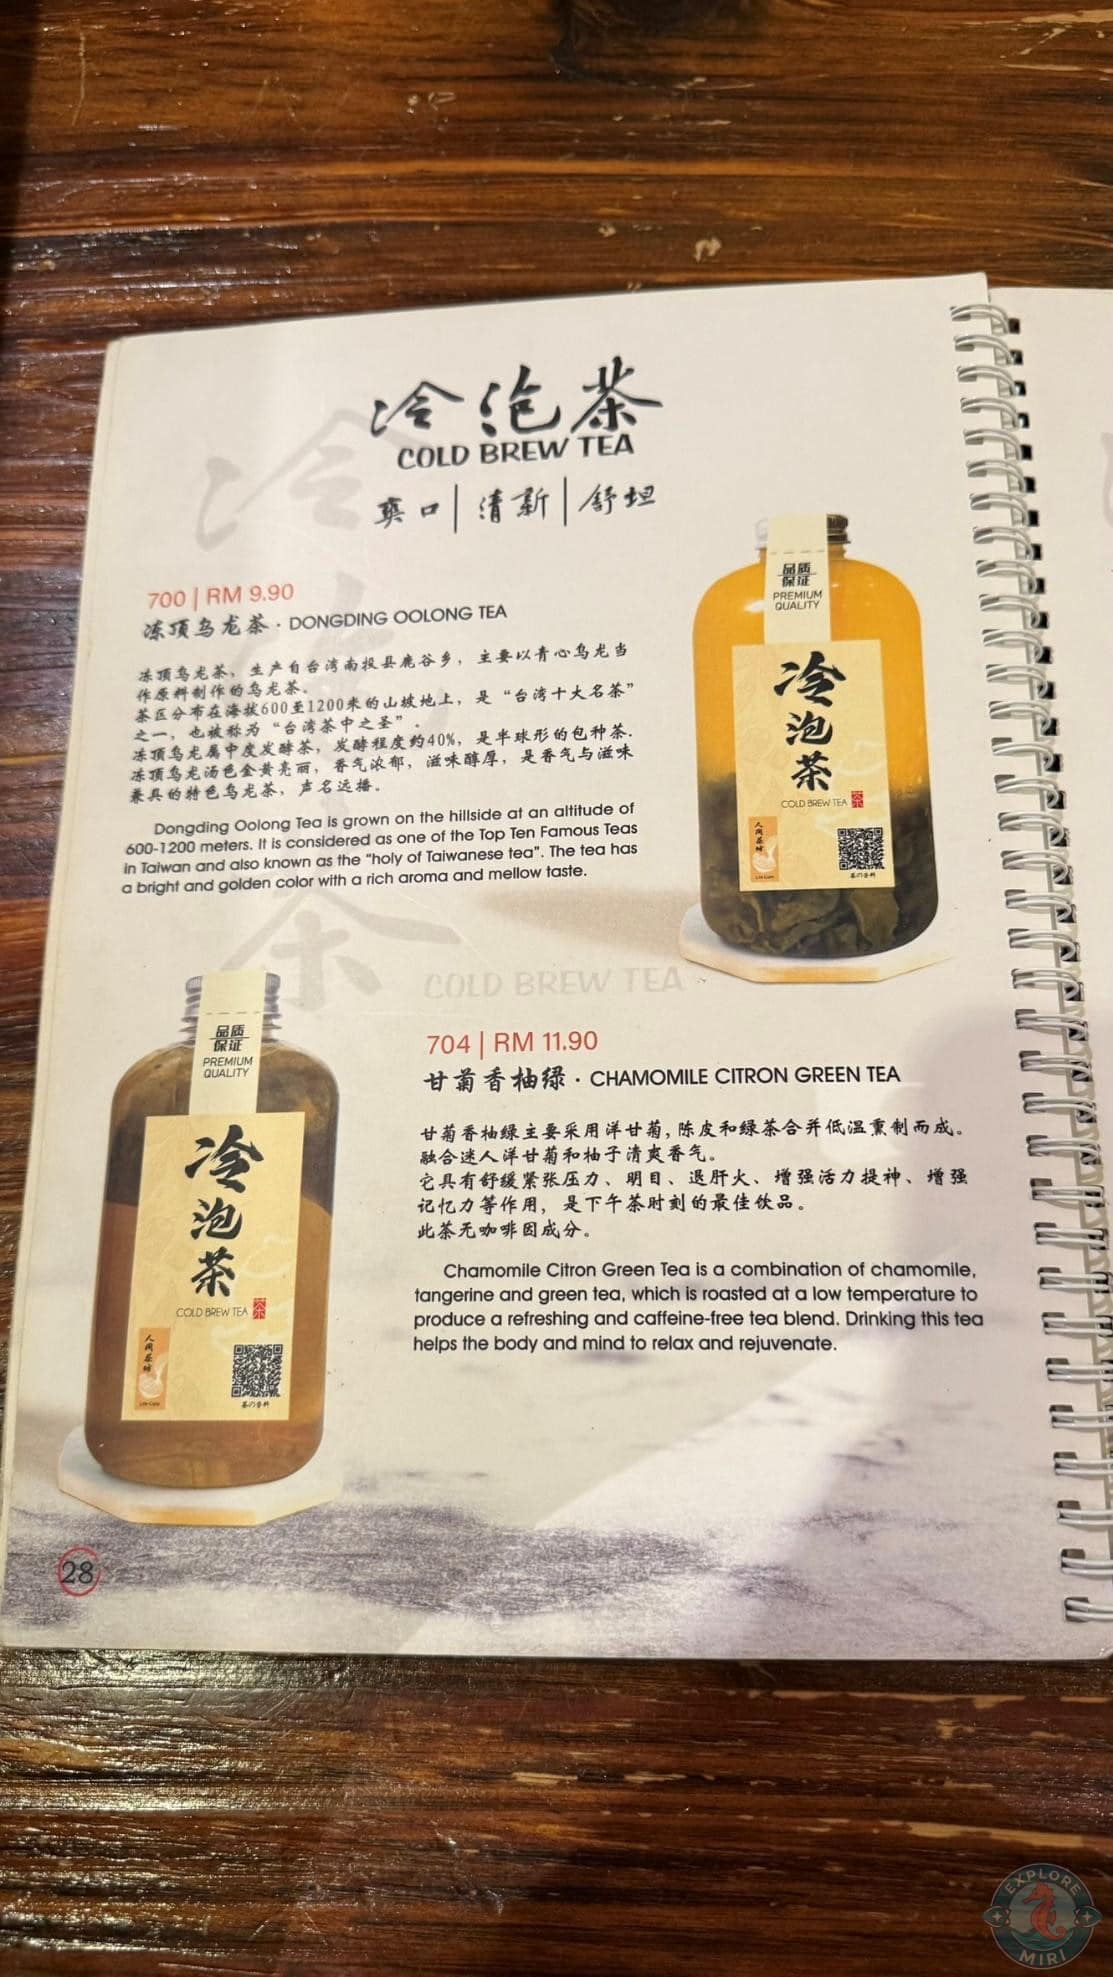 冷泡茶
COLD BREW TEA
爽口|清新|舒坦
700 | RM 9.90
冻顶乌龙茶 · DONGDING OOLONG TEA
冻顶乌龙茶，生产自台湾南投县鹿谷乡，主要以青心乌龙当
作原料制作的乌龙茶.
茶区分布在海拔600至1200米的山坡地上，是“台湾十大名茶”
之一，也被称为“台湾茶中之圣”.
冻顶乌龙属中度发酵茶，发酵程度约40%，是半球形的包种茶.
冻顶乌龙汤色金黄亮丽，香气浓郁，滋味醇厚，是香气与滋味
兼具的特色乌龙茶，声名远播。
Dongding Oolong Tea is grown on the hillside at an altitude of
600-1200 meters. It is considered as one of the Top Ten Famous Teas
in Taiwan and also known as the "holy of Taiwanese tea". The tea has
a bright and golden color with a rich aroma and mellow taste.
品质
保证
PREMIUM
QUALITY
冷
泡
茶
COLD BREW TEA 茶
人间茶坊
冷
泡
茶
COLD BREW TEA
704 | RM 11.90
甘菊香柚绿 · CHAMOMILE CITRON GREEN TEA
甘菊香柚绿主要采用洋甘菊，陈皮和绿茶合并低温熏制而成。
融合迷人洋甘菊和柚子清爽香气。
它具有舒缓紧张压力、明目、退肝火、增强活力提神、增强
记忆力等作用，是下午茶时刻的最佳饮品。
此茶无咖啡因成分。
Chamomile Citron Green Tea is a combination of chamomile,
tangerine and green tea, which is roasted at a low temperature to
produce a refreshing and caffeine-free tea blend. Drinking this tea
helps the body and mind to relax and rejuvenate.
品质
保证
PREMIUM
QUALITY
冷
泡
茶
COLD BREW TEA 茶
人间茶坊
28
EXPLORE
MIRI